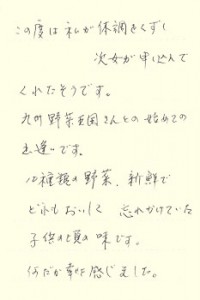 この度は私が体調をくずし
次女が申し込んで
くれたそうです。
九州野菜王国さんとの始めての
出逢いです。
10種類の野菜、新鮮で
どれもおいしく 忘れかけていた
子供の頃の味です。
何だか幸せ感じました。